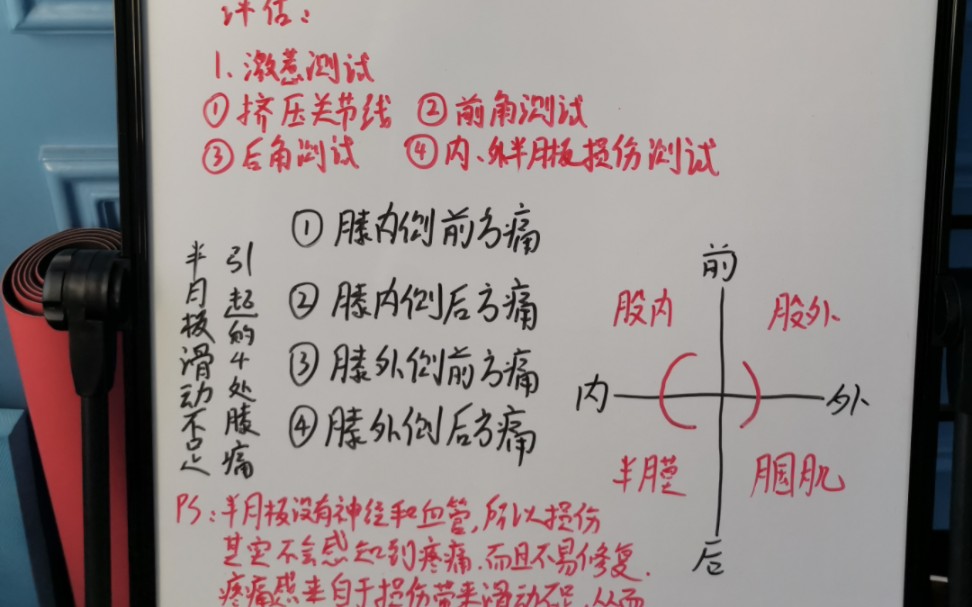 评估：
1. 激惹测试
① 挤压关节线 ② 前角测试
③ 后角测试 ④ 内、外半月板损伤测试
半月板滑动不足
引起的4处膝痛
① 膝内侧前方痛
② 膝内侧后方痛
③ 膝外侧前方痛
④ 膝外侧后方痛
前
股内 股外
内 外
半膜 腘肌
后
PS：半月板没有神经和血管，所以损伤
其实不会感知到疼痛，而且不易修复.
疼痛感来自于损伤带来滑动不足，从而